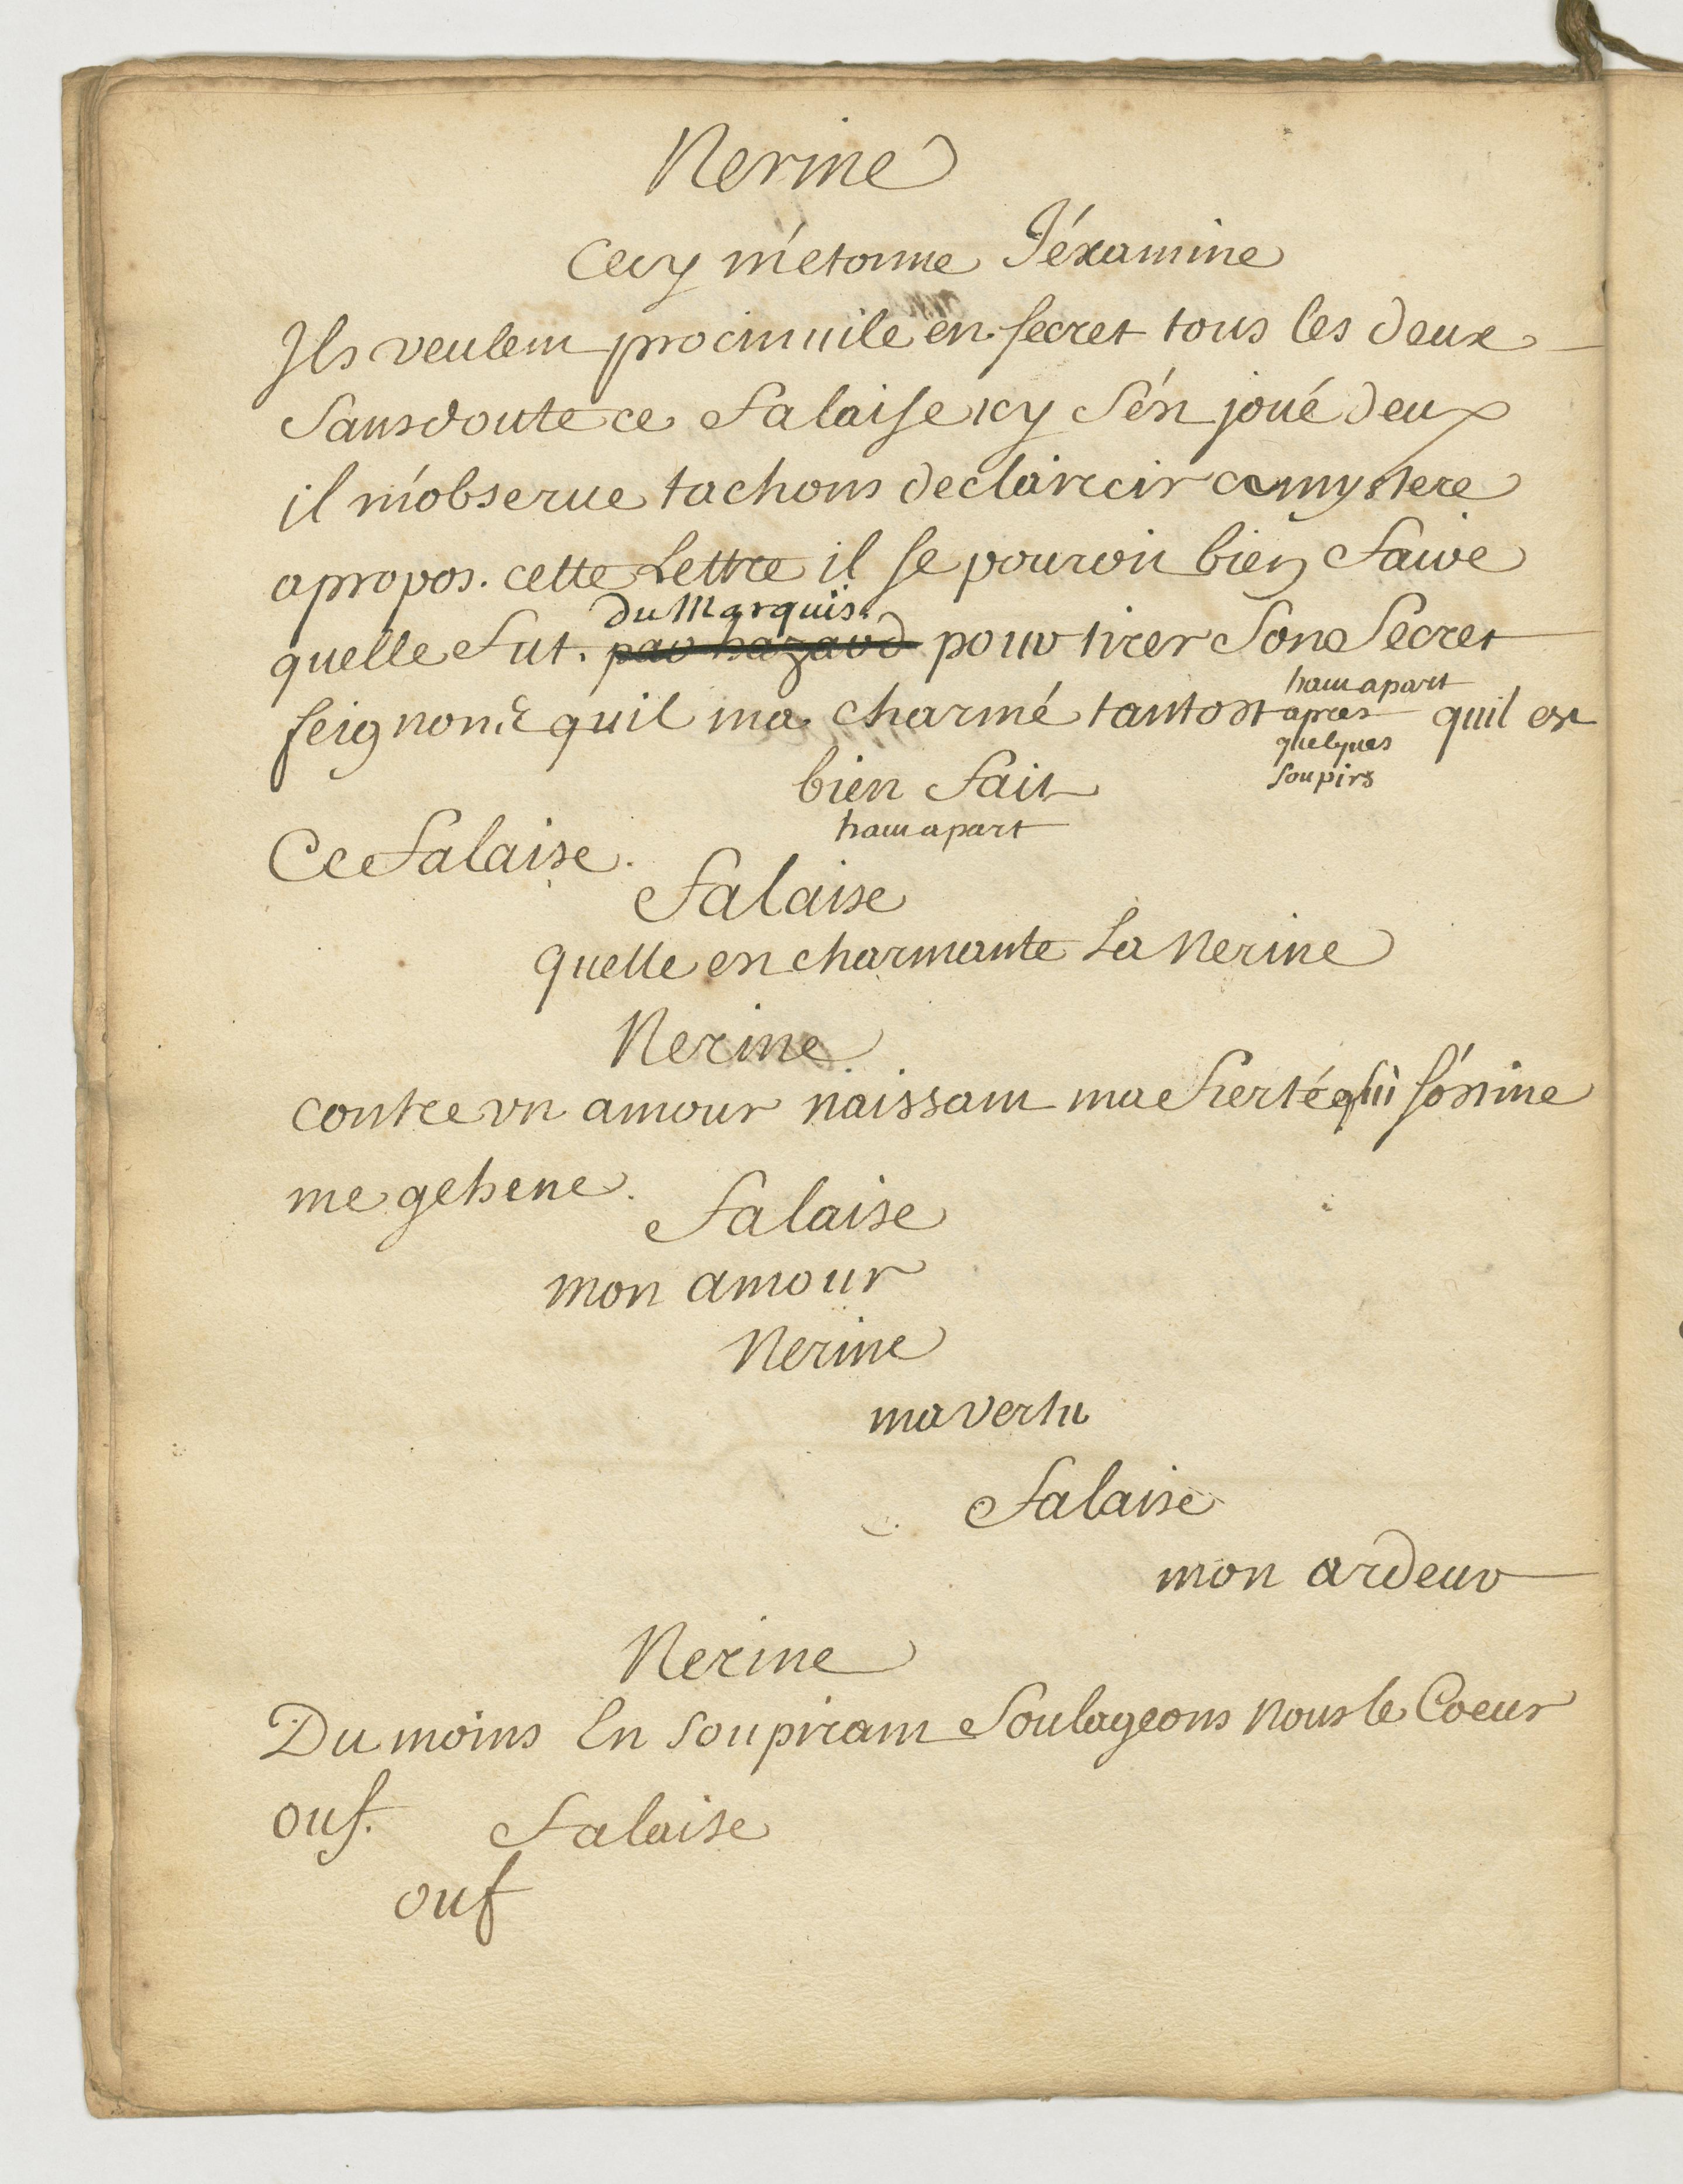 Nerine
Cecy m'etonne J'éxamine
Ils veulent procinuile en secret tous les deux
Sans doute ce falaise icy s'én joué deux
il m'obserue tachons declaircir ce mystere
apropos. cette Lettre il se pouroit bien faire
du Marquis.
quelle fut. par hazard pour tirer Son Secret
haut apart
feignons quil ma charmé tantost apres quil est
quelques
soupirs
bien fait
haut apart
Ce falaise.
falaise
quelle est charmante La Nerine
Nerine
contre vn amour naissant ma fierté qui s'óstine
me gehene.
falaise
mon amour
Nerine
ma vertu
falaise
mon ardeur
Nerine
Du moins En soupirant Soulageons nous le Coeur
ouf.
falaise
ouf